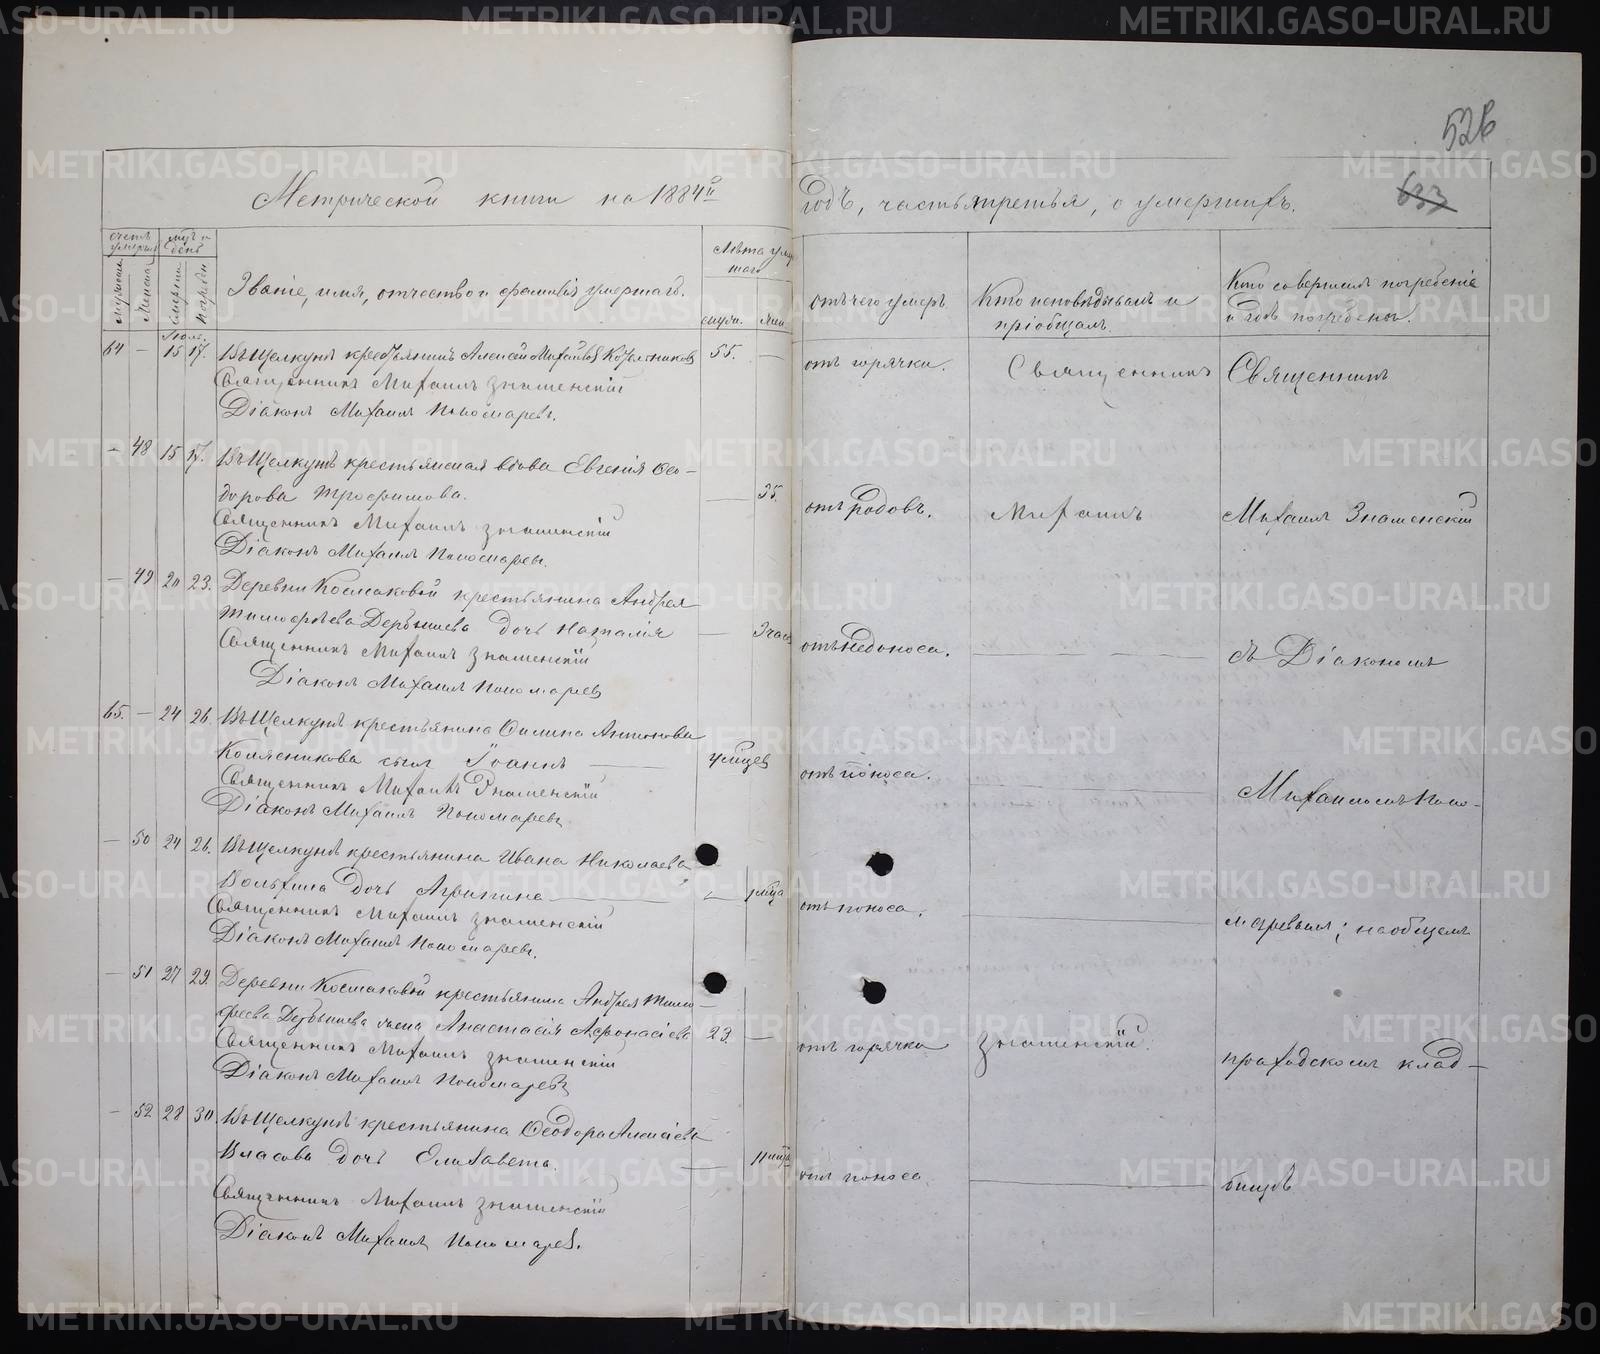 526
633
Метрической книги на 1884й
годъ, часть третья, о умершихъ.
счетъ умерш.
мцъ и день
Лѣта умершаго
мужеска
женска
смерти
погреб.
Званіе, имя, отчество и фамилія умершаго.
мужс.
жен.
отъ чего умеръ
Кто исповѣдывалъ и пріобщалъ.
Кто совершалъ погребеніе и гдѣ погребены.
Іюль.
64 — 15 17. Въ Щелкунѣ крестьянинъ Алексѣй Михайловъ Котельниковъ 55. —
Священникъ Михаилъ Знаменскій
Діаконъ Михаилъ Пономаревъ.
отъ горячки. Священникъ Священникъ
— 48 15 17. Въ Щелкунѣ крестьянская вдова Евгенія Ѳео-
дорова Трофимова. — 35.
Священникъ Михаилъ Знаменскій
Діаконъ Михаилъ Пономаревъ.
отъ родовъ. Михаилъ Михаилъ Знаменскій
— 49 20 23. Деревни Космаковой крестьянина Андрея
Тимофѣева Дербышева дочь Наталія — 3 час
Священникъ Михаилъ Знаменскій
Діаконъ Михаилъ Пономаревъ
отъ недоноса. съ Діакономъ
65. — 24 26. Въ Щелкунѣ крестьянина Филипа Антонова
Колясникова сынъ Іоаннъ
Священникъ Михаилъ Знаменскій
Діаконъ Михаилъ Пономаревъ
отъ поноса. Михаиломъ Поно-
— 50 24 26. Въ Щелкунѣ крестьянина Ивана Николаева
дочь Агрипина —
Священникъ Михаилъ Знаменскій
Діаконъ Михаилъ Пономаревъ.
отъ поноса. маревымъ; на общемъ
— 51 27 29. Деревни Космаковой крестьянина Андрея Тимо-
феева Дербышева жена Анастасія Афонасіева 23. —
Священникъ Михаилъ Знаменскій
Діаконъ Михаилъ Пономаревъ
отъ горячки Знаменскій. приходскомъ клад-
— 52 28 30. Въ Щелкунѣ крестьянина Ѳеодора Алексіева
Власова дочь Елизавета. — 11 мцъ
Священникъ Михаилъ Знаменскій
Діаконъ Михаилъ Пономаревъ.
отъ поноса бищѣ
METRIKI.GASO-URAL.RU